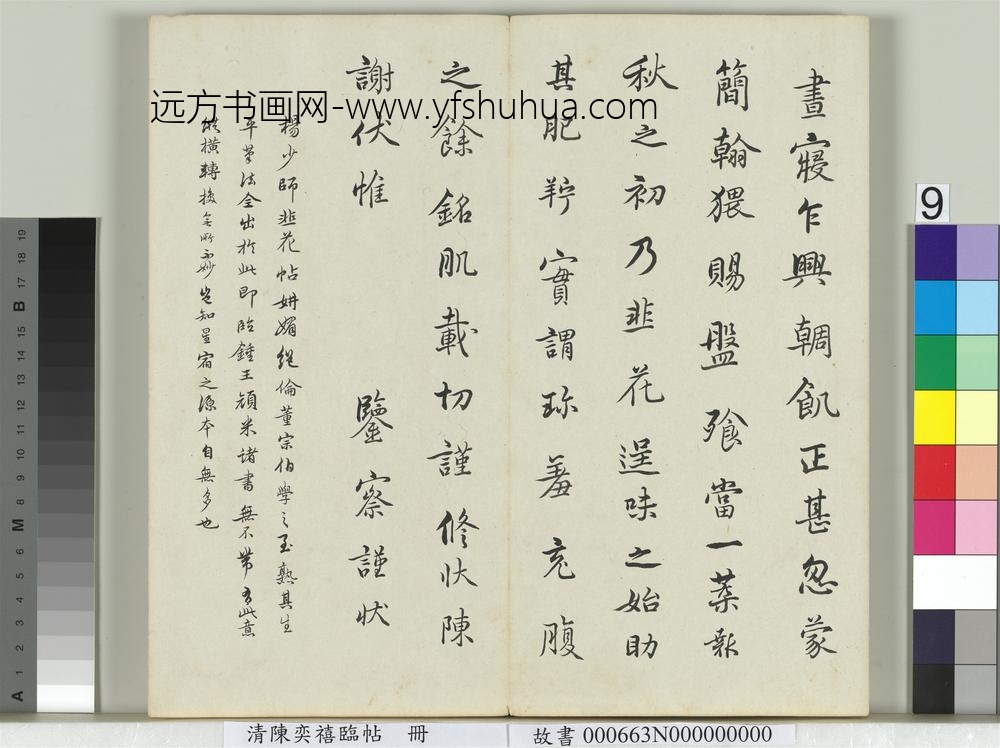 晝寢乍興朝飢正甚忽蒙
簡翰猥賜盤飱當一葉報
秋之初乃韭花逞味之始助
其肥羜實謂珎羞充腹
之餘銘肌載切謹修狀陳
謝伏惟 鑒察謹狀
楊少師韭花帖妍媚絕倫董宗伯學之至熟其生
平筆法全出於此即臨鍾王顏米諸書無不帶有此意
縱橫轉換無所不妙豈知星宿之源本自無多也
远方书画网-www.yfshuhua.com
清陳奕禧臨帖 冊
故書 000663N000000000
9
A 1 2 3 4 5 6 M 8 9 10 11 12 13 14 15 B 17 18 19